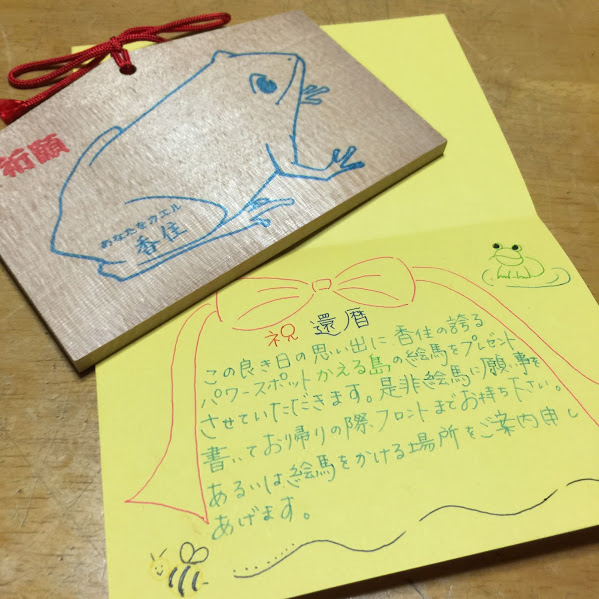 祈願
あなたをカエル
香住
祝 還暦
この良き日の思い出に香住の誇る
パワースポットかえる島の絵馬をプレゼント
させていただきます。是非絵馬に願い事を
書いており帰りの際、フロントまでお持ち下さい。
あるいは絵馬をかける場所をご案内申し
あげます。